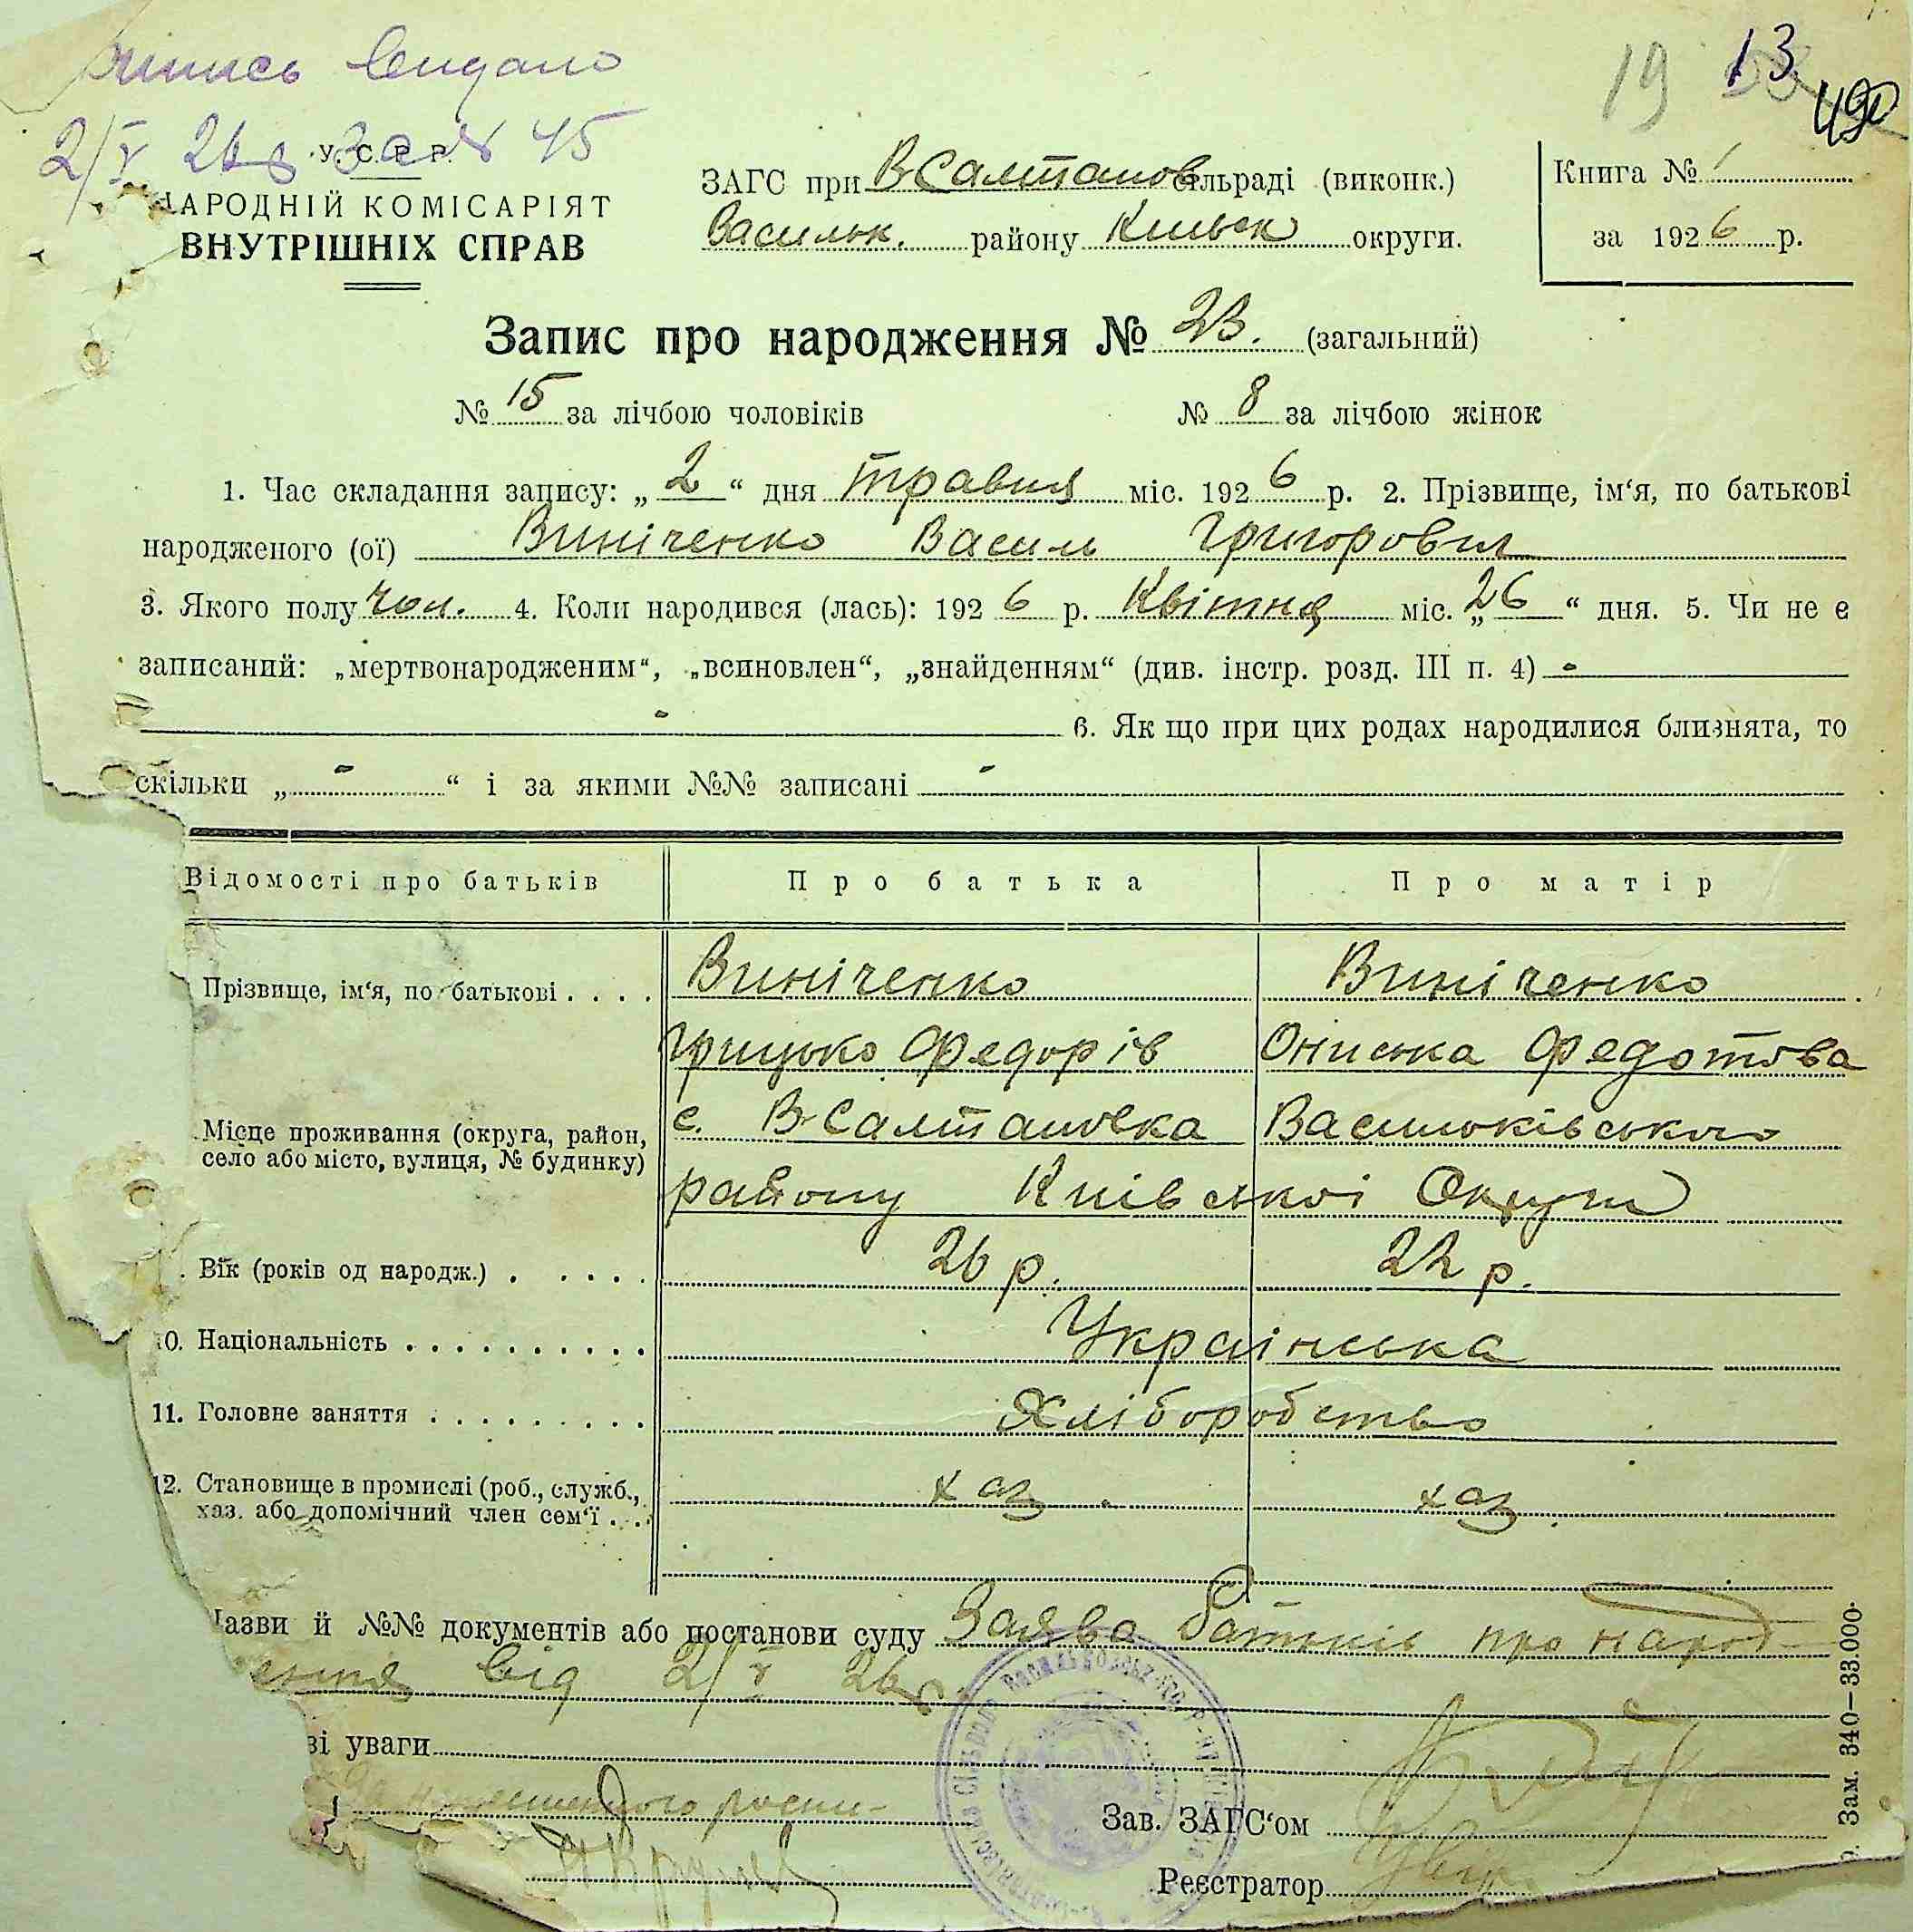 випись видано
2/V 26 р за № 45
19 13 490
У. С. Р. Р.
НАРОДНІЙ КОМІСАРІЯТ
ВНУТРІШНІХ СПРАВ
ЗАГС при В-Салтанов сільраді (виконк.)
Васильк. району Київськ округи.
Книга № 1
за 1926 р.
Запис про народження № 23. (загальний)
№ 15 за лічбою чоловіків № 8 за лічбою жінок
1. Час складання запису: „ 2 “ дня травня міс. 1926 р. 2. Прізвище, ім‘я, по батькові
народженого (ої) Виніченко Василь Григорович
3. Якого полу чол. 4. Коли народився (лась): 1926 р. Квітня міс. „26“ дня. 5. Чи не є
записаний: „мертвонародженим“, „всиновлен“, „знайденням“ (див. інстр. розд. III п. 4) -
- 6. Як що при цих родах народилися близнята, то
скільки „ - “ і за якими №№ записані -
Відомості про батьків Про батька Про матір
Прізвище, ім‘я, по батькові . . . . Виніченко Виніченко
Грицько Федорів Ониська Федотова
Місце проживання (округа, район, село або місто, вулиця, № будинку) с. В-Салтановка Васильківського
району Київської Округи
Вік (років од народж.) . . . . . 26 р. 22 р.
10. Національність . . . . . . . . . . Українська
11. Головне заняття . . . . . . . . . Хліборобство
12. Становище в промислі (роб., служб., хаз. або допомічний член сем‘ї . . . хаз. хаз.
Назви й №№ документів або постанови суду Заява батьків про народ-
ення від 2/V 26 р.
ві уваги
Зав. ЗАГС‘ом
Реєстратор
Зам. 340—33.000.